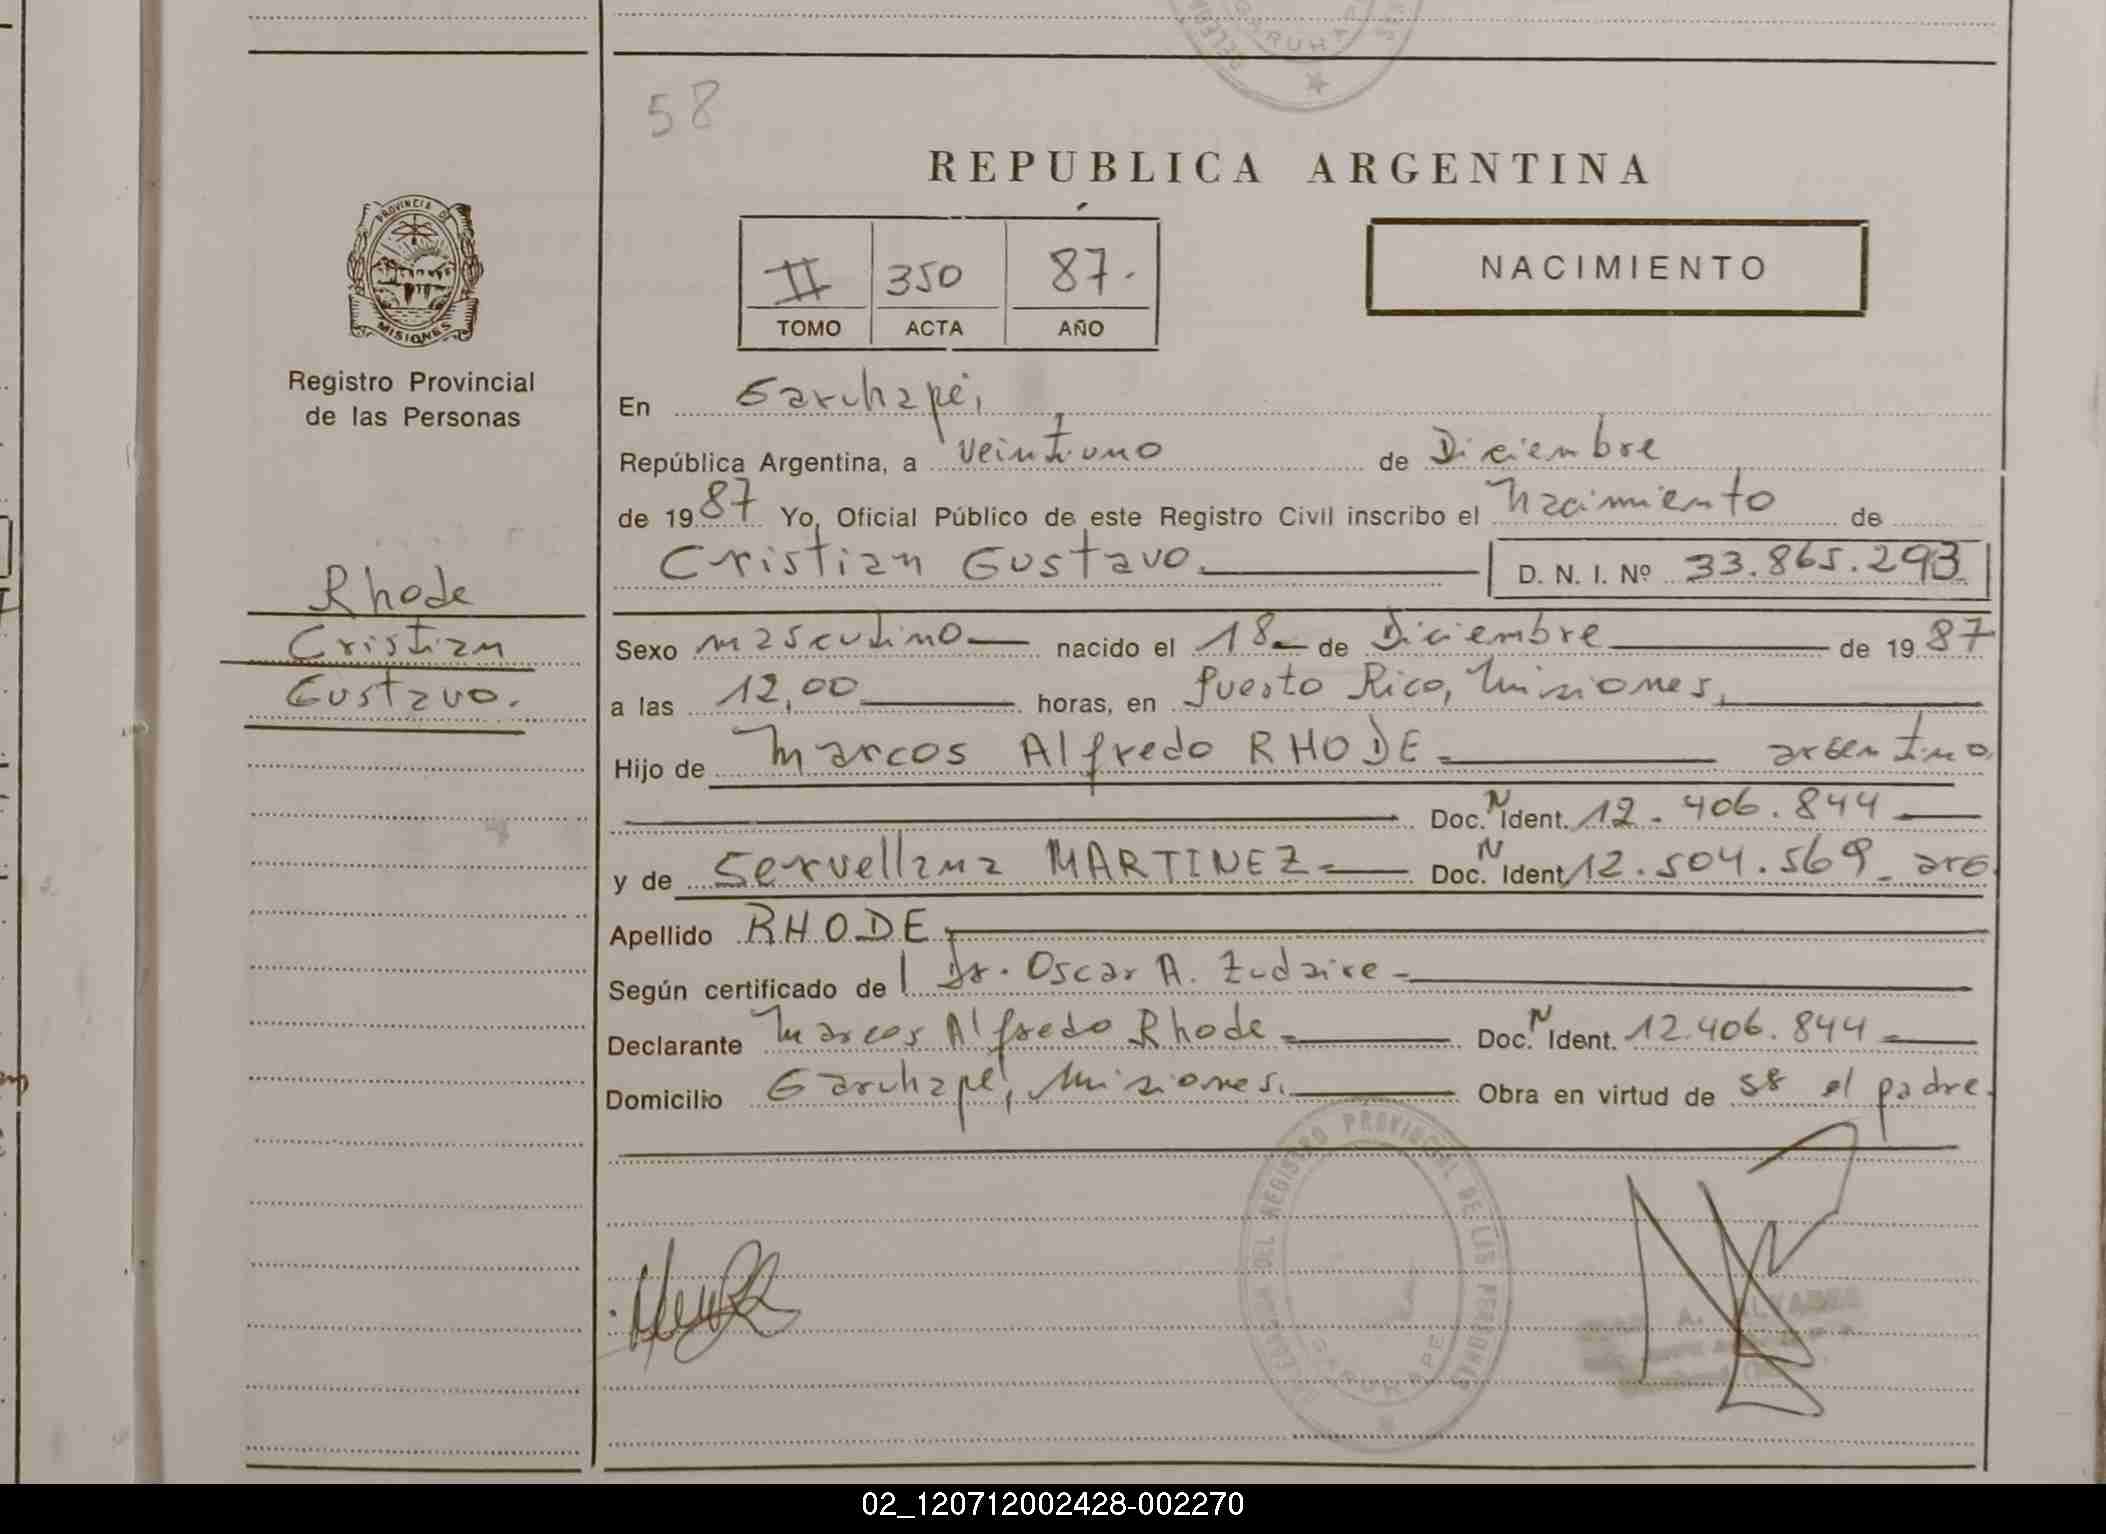 GARUHAPE
58
REPUBLICA ARGENTINA
II 350 87.
TOMO ACTA AÑO
NACIMIENTO
PROVINCIA DE
MISIONES
Registro Provincial
de las Personas
Rhode
Cristian
Gustavo.
En Garuhapé,
República Argentina, a veintiuno de Diciembre
de 1987 Yo, Oficial Público de este Registro Civil inscribo el Nacimiento de
Cristian Gustavo. D. N. I. Nº 33.865.293
Sexo masculino nacido el 18 de Diciembre de 1987
a las 12,00 horas, en Puerto Rico, Misiones,
Hijo de Marcos Alfredo RHODE argentino
Doc. N Ident. 12.406.844
y de Servellana MARTINEZ Doc. N Ident. 12.504.569 arg.
Apellido RHODE
Según certificado de Dr. Oscar A. Zudaire
Declarante Marcos Alfredo Rhode Doc. N Ident. 12.406.844
Domicilio Garuhapé, Misiones. Obra en virtud de ss el padre.
DEL REGISTRO PROVINCIAL DE LAS PERSONAS
GARUHAPE
02_120712002428-002270